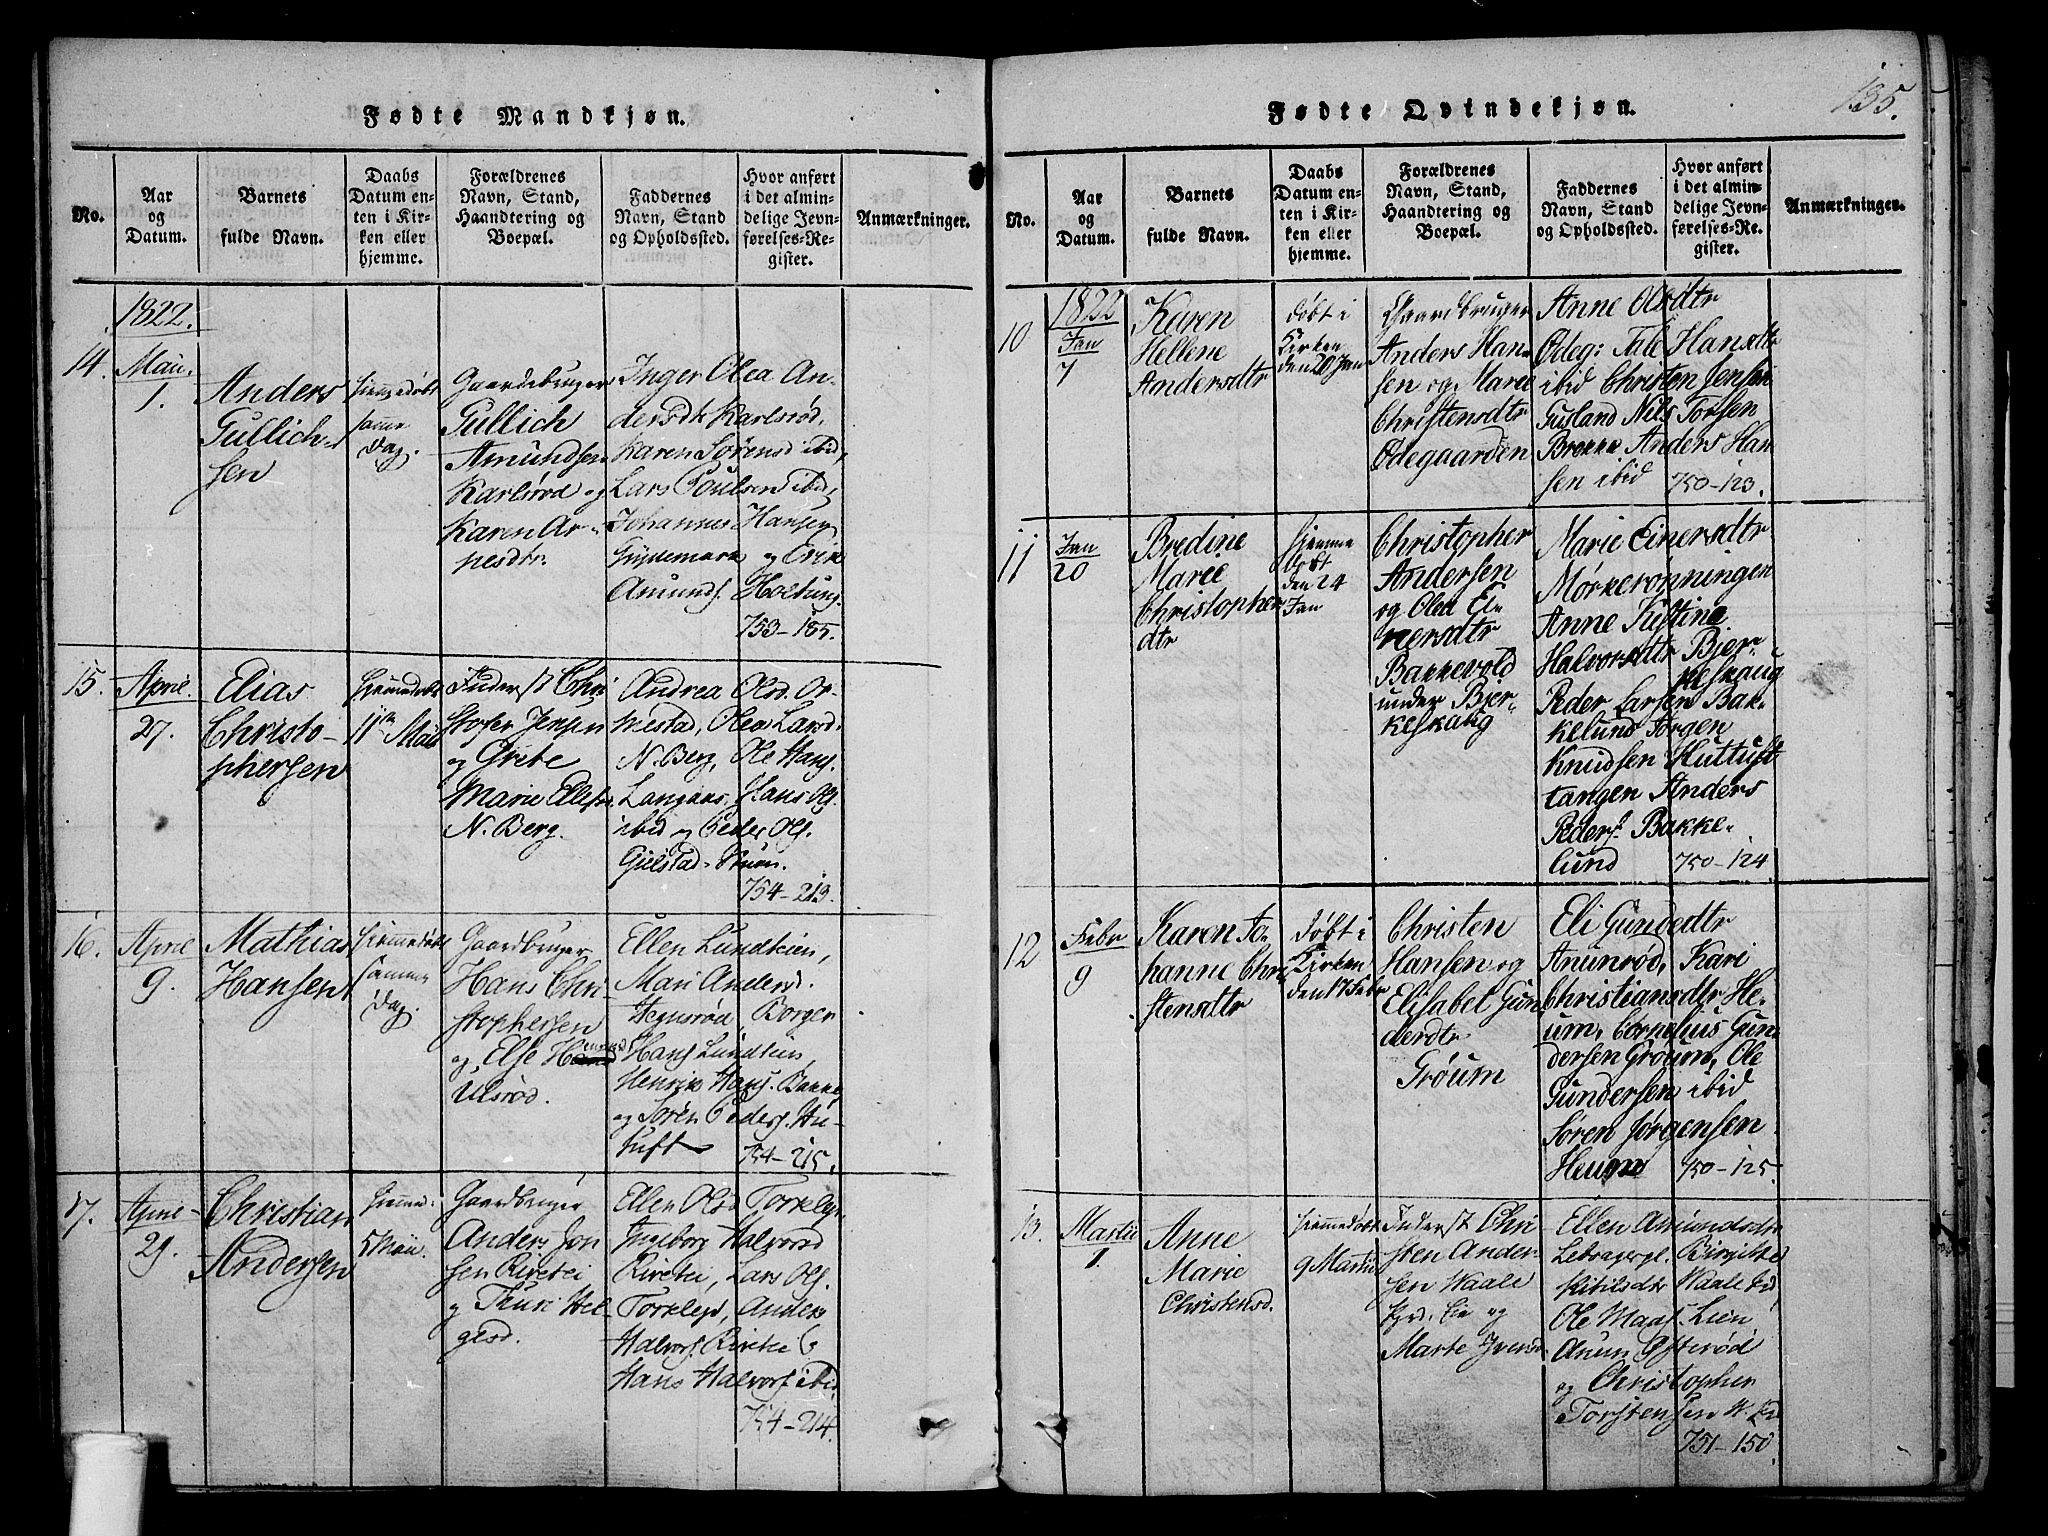 135.
Fødte Mandkjøn.
No.
Aar
og
Datum.
Barnets
fulde Navn.
Daabs
Datum en-
ten i Kir-
ken eller
hjemme.
Forældrenes
Navn, Stand,
Haandtering og
Boepæl.
Faddernes
Navn, Stand
og Opholdssted.
Hvor anført
i det almin-
delige Jevn-
førelses-Re-
gister.
Anmærkninger.
1822.
14.
Maii.
1.
Anders
Gullich-
sen
Hjemmedøbt
samme
Dag.
Gaardbruger
Gullich
Amundsen
Karlsrød og
Karen Ar-
nesdtr.
Inger Olea An-
dersdtr Karlsrød,
Karen Sørensd ibid,
Lars Poulsen ibid,
Johannes Hansen
og Erik
Amunds. Holtung.
753-185.
15.
April.
27.
Elias
Christo-
phersen
Hjemmedøbt
11te Maii
Inderst Chri
stofer Jensen
og Grete
Marie Ellefsd.
N. Berg.
Andrea Olsd. Or-
mestad, Olea Larsd.
N. Berg, Ole Hans.
Hans Ols.
ibid og Peder Ols.
754-213.
16.
April
9.
Mathias
Hansen
Hjemmedøbt
samme
Dag.
Gaardbruger
Hans Chri-
stophersen
og Else
Ulsrød.
Ellen Lundteien,
Mari Andersd.
Borger
Hans Lundteien,
Henrik Hans. Bakke
og Søren Peders. Hu-
tuft
754-215.
17.
April
29.
Christian
Andersen
Hjemmed:
5 Maii.
Gaardbruger
Anders Jon
sen Rivetei
og Thuri Hel-
gesd.
Ellen Olsd Torklep,
Ingeborg Halvorsd
Rivetei, Lars Ols.
Torklep, Anders
Halvors. Rivetei &
Hans Halvors. ibid.
754-214.
Fødte Qvindekjøn.
No.
Aar
og
Datum.
Barnets
fulde Navn.
Daabs
Datum en-
ten i Kir-
ken eller
hjemme.
Forældrenes
Navn, Stand,
Haandtering og
Boepæl.
Faddernes
Navn, Stand
og Opholdssted.
Hvor anført
i det almin-
delige Jevn-
førelses-Re-
gister.
Anmærkninger.
1822
10
Jan
7
Karen
Hellene
Andersdtr
døbt i
Kirken
den 20 Jan
Gaardbruger
Anders Han-
sen og Marie
Christensdtr
Ødegaarden
Anne Olsdtr
Ødeg: Tale Hansdtr
ibid Christen Jensen
Gusland Nils Torsen
Brekke Anders Han
sen ibid 750-123.
11
Jan
20
Bredine
Marie
Christopher
dtr
hjemme
døbt
den 24
Jan
Christopher
Andersen
og Olea Ei-
nersdtr
Bakkevold
under Bjer-
keskaug
Marie Einersdtr
Mørkerønningen
Anne Kistine
Halvorsdtr Bjer-
keskaug
Peder Larsen Bak-
kelund Jørgen
Knudsen Huttuft
tangen Anders
Peders. Bakke-
lund 750-124
12
Febr
9
Karen Jo-
hanne Chri
stensdtr
døbt i
Kirken
den 17 Febr
Christen
Hansen og
Elisabet Gun
derdtr
Grøum
Eli Gundedtr
Amunrød, Kari
Christiansdtr He-
um, Cornelius Gun
dersen Grøum, Ole
Gundersen ibid
Søren Jørgensen
Heum 750-125.
13.
Martii
1.
Anne
Marie
Christensd.
Hjemmedøbt
9 Martii
Inderst Chri
sten Ander-
sen Waale
Eie og
Marte Iversd.
Ellen Amundsdtr
Birgitte
Ketilsdtr Waale Eid,
Ole Maas. Lien,
Amun Gsterød
og Christopher
Torstensen W. Eie
751-150